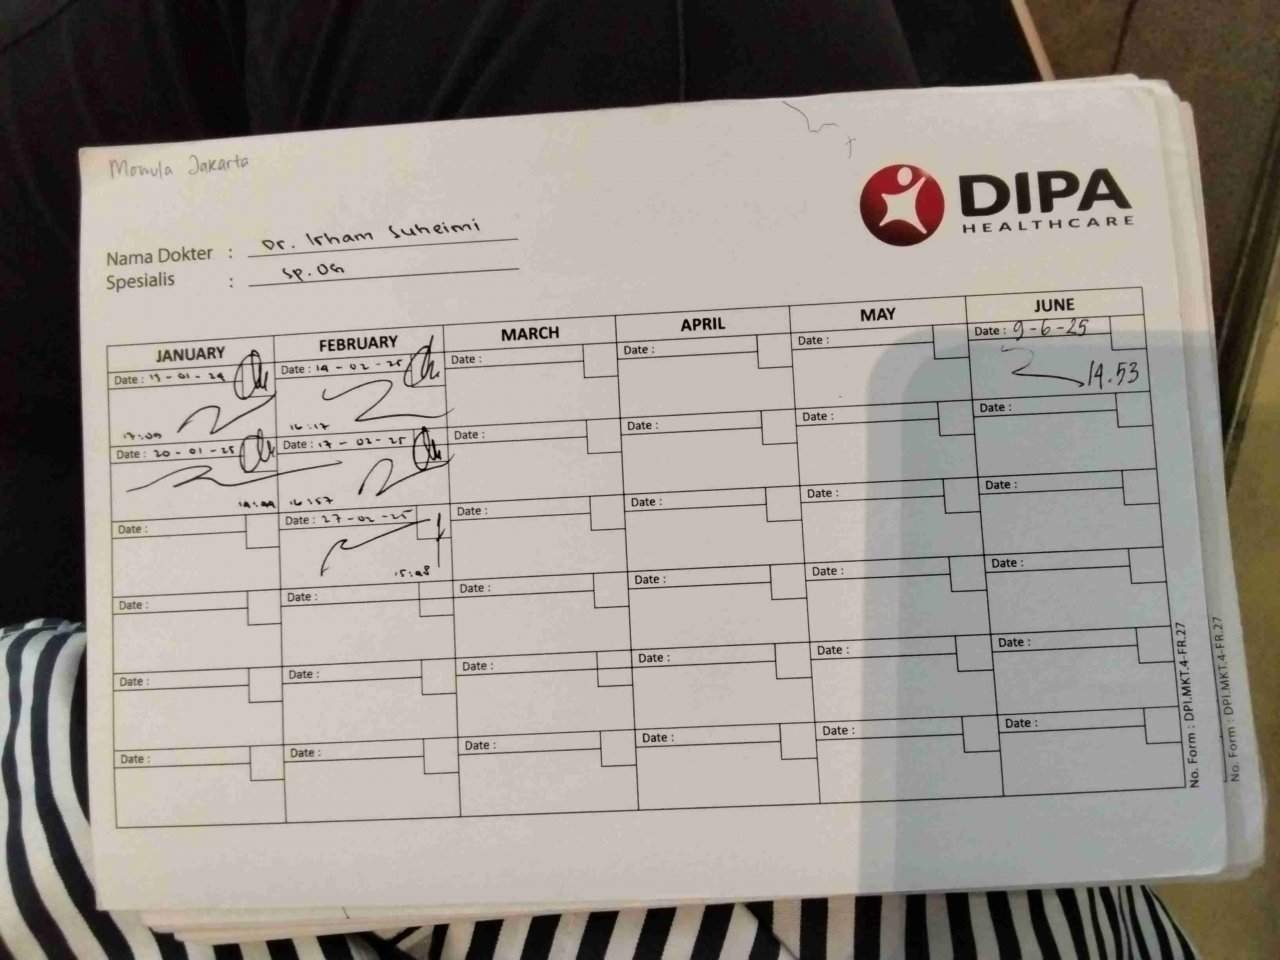 Momula Jakarta
DIPA
HEALTHCARE
Nama Dokter : Dr. Irham Suheimi
Spesialis : Sp. OG
JANUARY FEBRUARY MARCH APRIL MAY JUNE
Date : Date : 14 - 02 - 25 Date : Date : Date : Date : 9-6-25
16:17 14.53
Date : 20 - 01 - 25 Date : 17 - 02 - 25 Date : Date : Date : Date :
16:57
Date : Date : 27 - 02 - 25 Date : Date : Date : Date :
Date : Date : Date : Date : Date : Date :
Date : Date : Date : Date : Date : Date :
Date : Date : Date : Date : Date : Date :
No. Form : DPI.MKT.4-FR.27
No. Form : DPI.MKT.4-FR.27